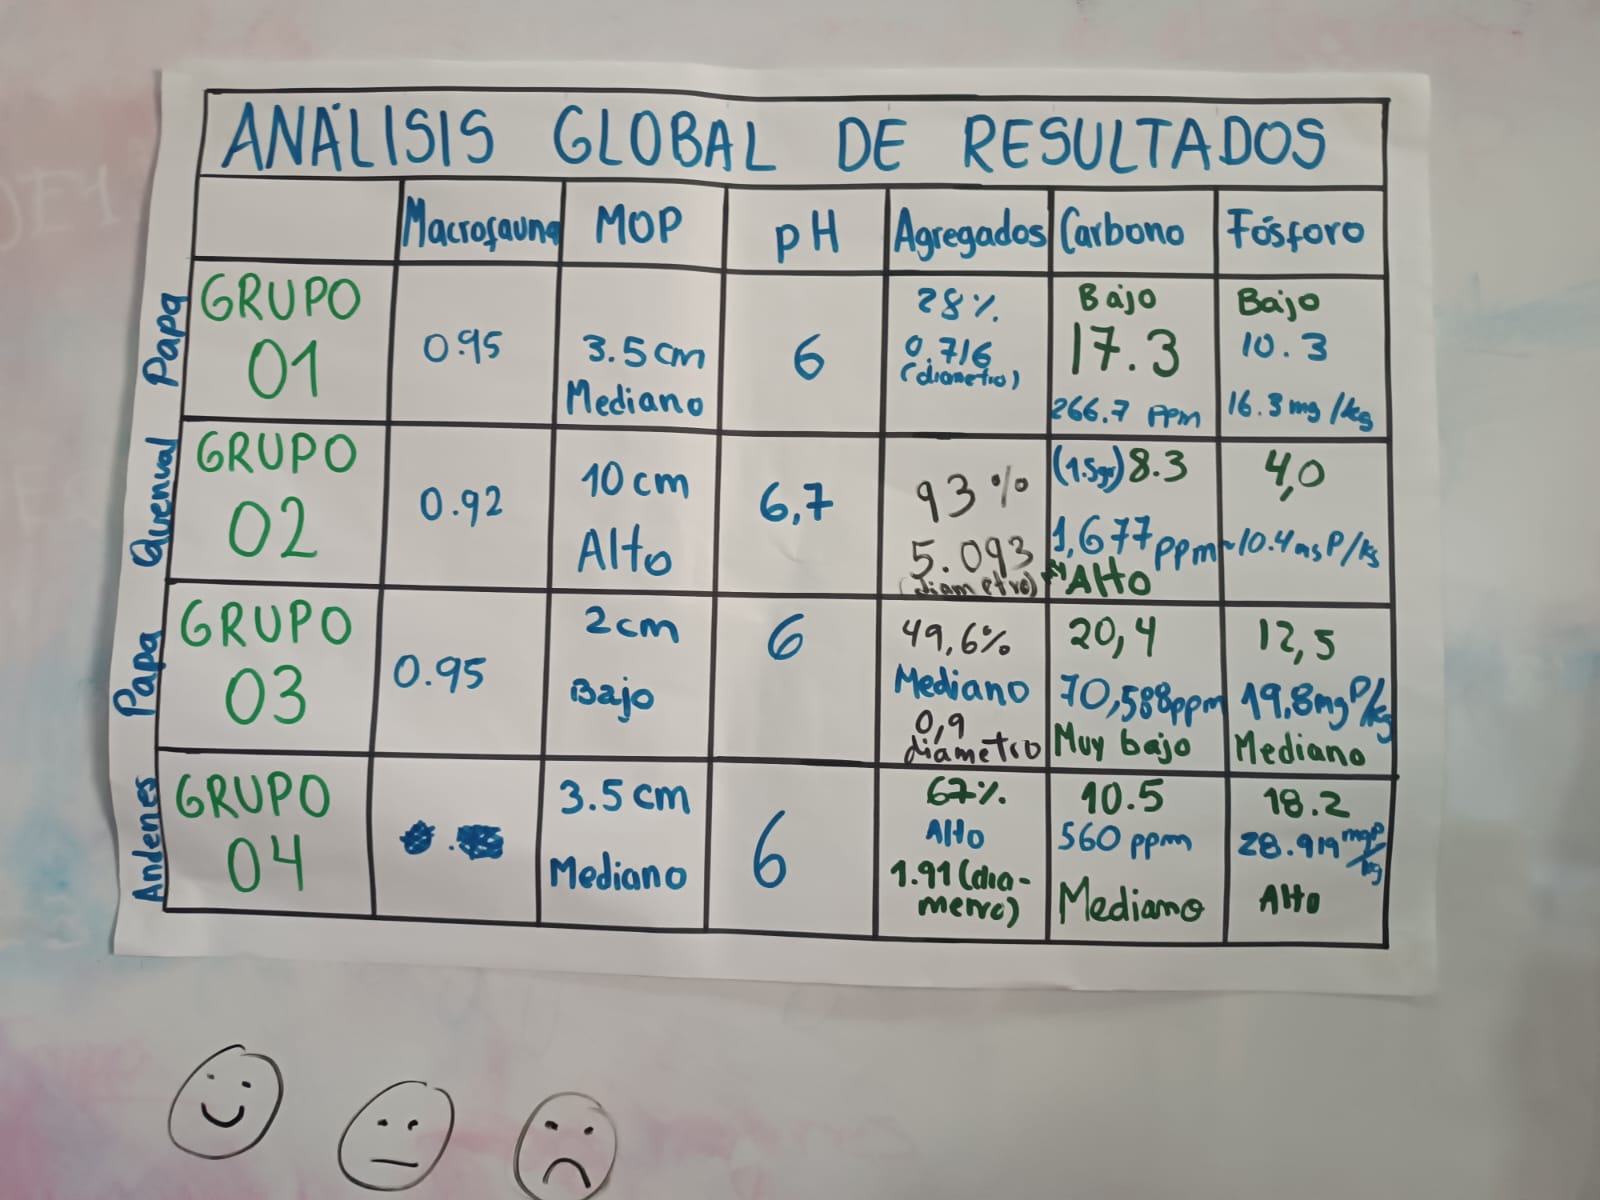 ANÁLISIS GLOBAL DE RESULTADOS
Macrofauna MOP pH Agregados Carbono Fósforo
Papa
GRUPO 01
0.95
3.5 cm
Mediano
6
28%
0.716
(diametro)
Bajo
17.3
266.7 ppm
Bajo
10.3
16.3 mg/kg
Quenual
GRUPO 02
0.92
10 cm
Alto
6,7
93%
5.093
(diametro)
(1.5gr) 8.3
1,677 ppm
Alto
4,0
~10.4 mg P/kg
Papa
GRUPO 03
0.95
2 cm
Bajo
6
49,6%
Mediano
0,9
diametro
20,4
70,588 ppm
Muy bajo
12,5
19,8 mg P/kg
Mediano
Andenes
GRUPO 04
3.5 cm
Mediano
6
67%
Alto
1.91 (dia-
metro)
10.5
560 ppm
Mediano
18.2
28.919 mg P/kg
Alto